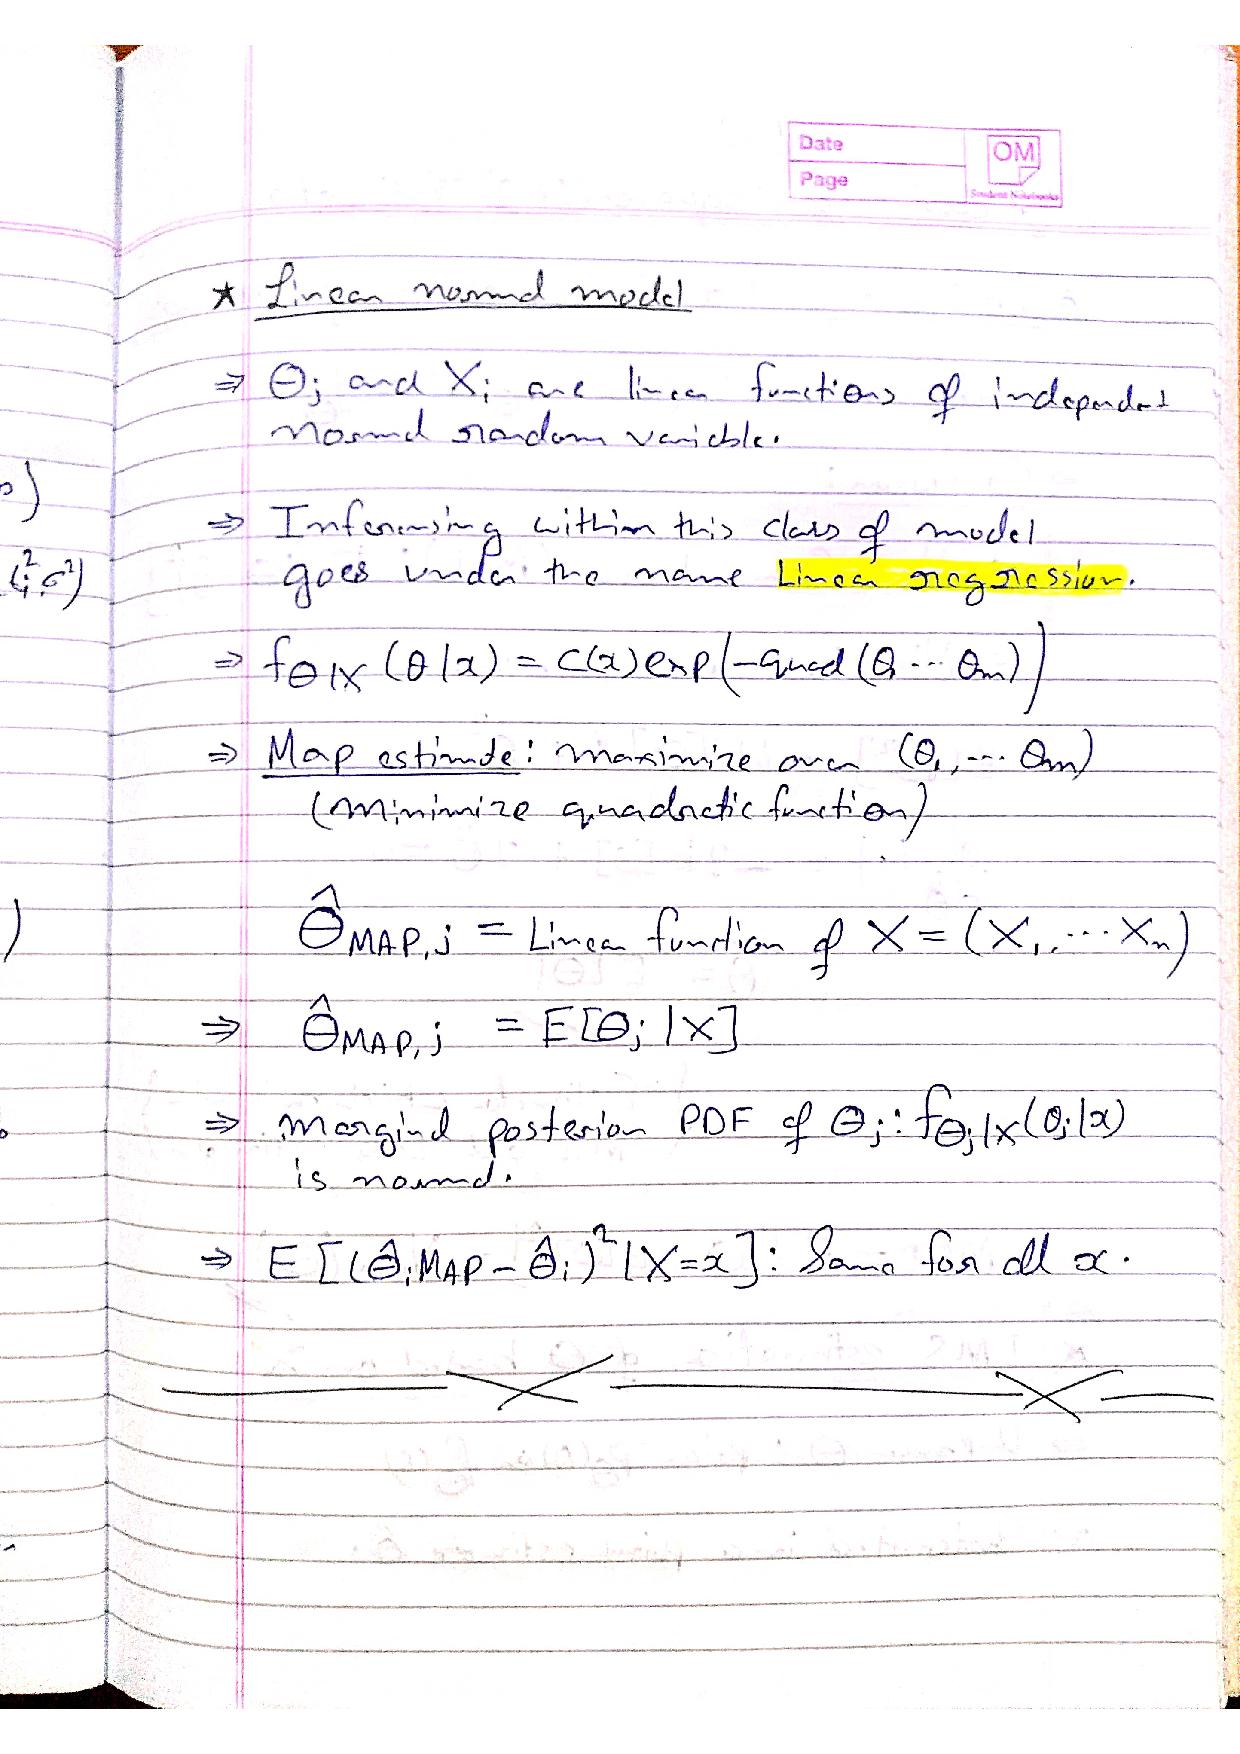 Date
Page
OM
Student Notebooks
★ Linear normal model
⇒ Θj and Xi are linear functions of independent
normal random variable.
⇒ Inferensing within this class of model
goes under the name Linear regression.
⇒ fΘ|X (θ|x) = c(x) exp(-quad(θ, ... θm))
⇒ Map estimate: maximize over (θ1, ... θm)
(minimize quadratic function)
Θ̂MAP,j = Linear function of X = (X1, ... Xn)
⇒ Θ̂MAP,j = E[Θj | X]
⇒ marginal posterior PDF of Θj: fΘj|X(θj|x)
is normal.
⇒ E[(Θ̂i,MAP - Θ̂i)² | X=x]: Same for all x.